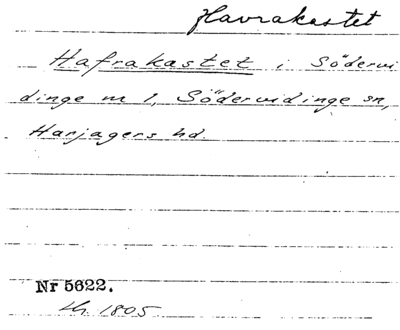 Havrakastet
Hafrakastet i Södervi
dinge m 1, Södervidinge sn,
Harjagers hd.
Nr 5622.
1805